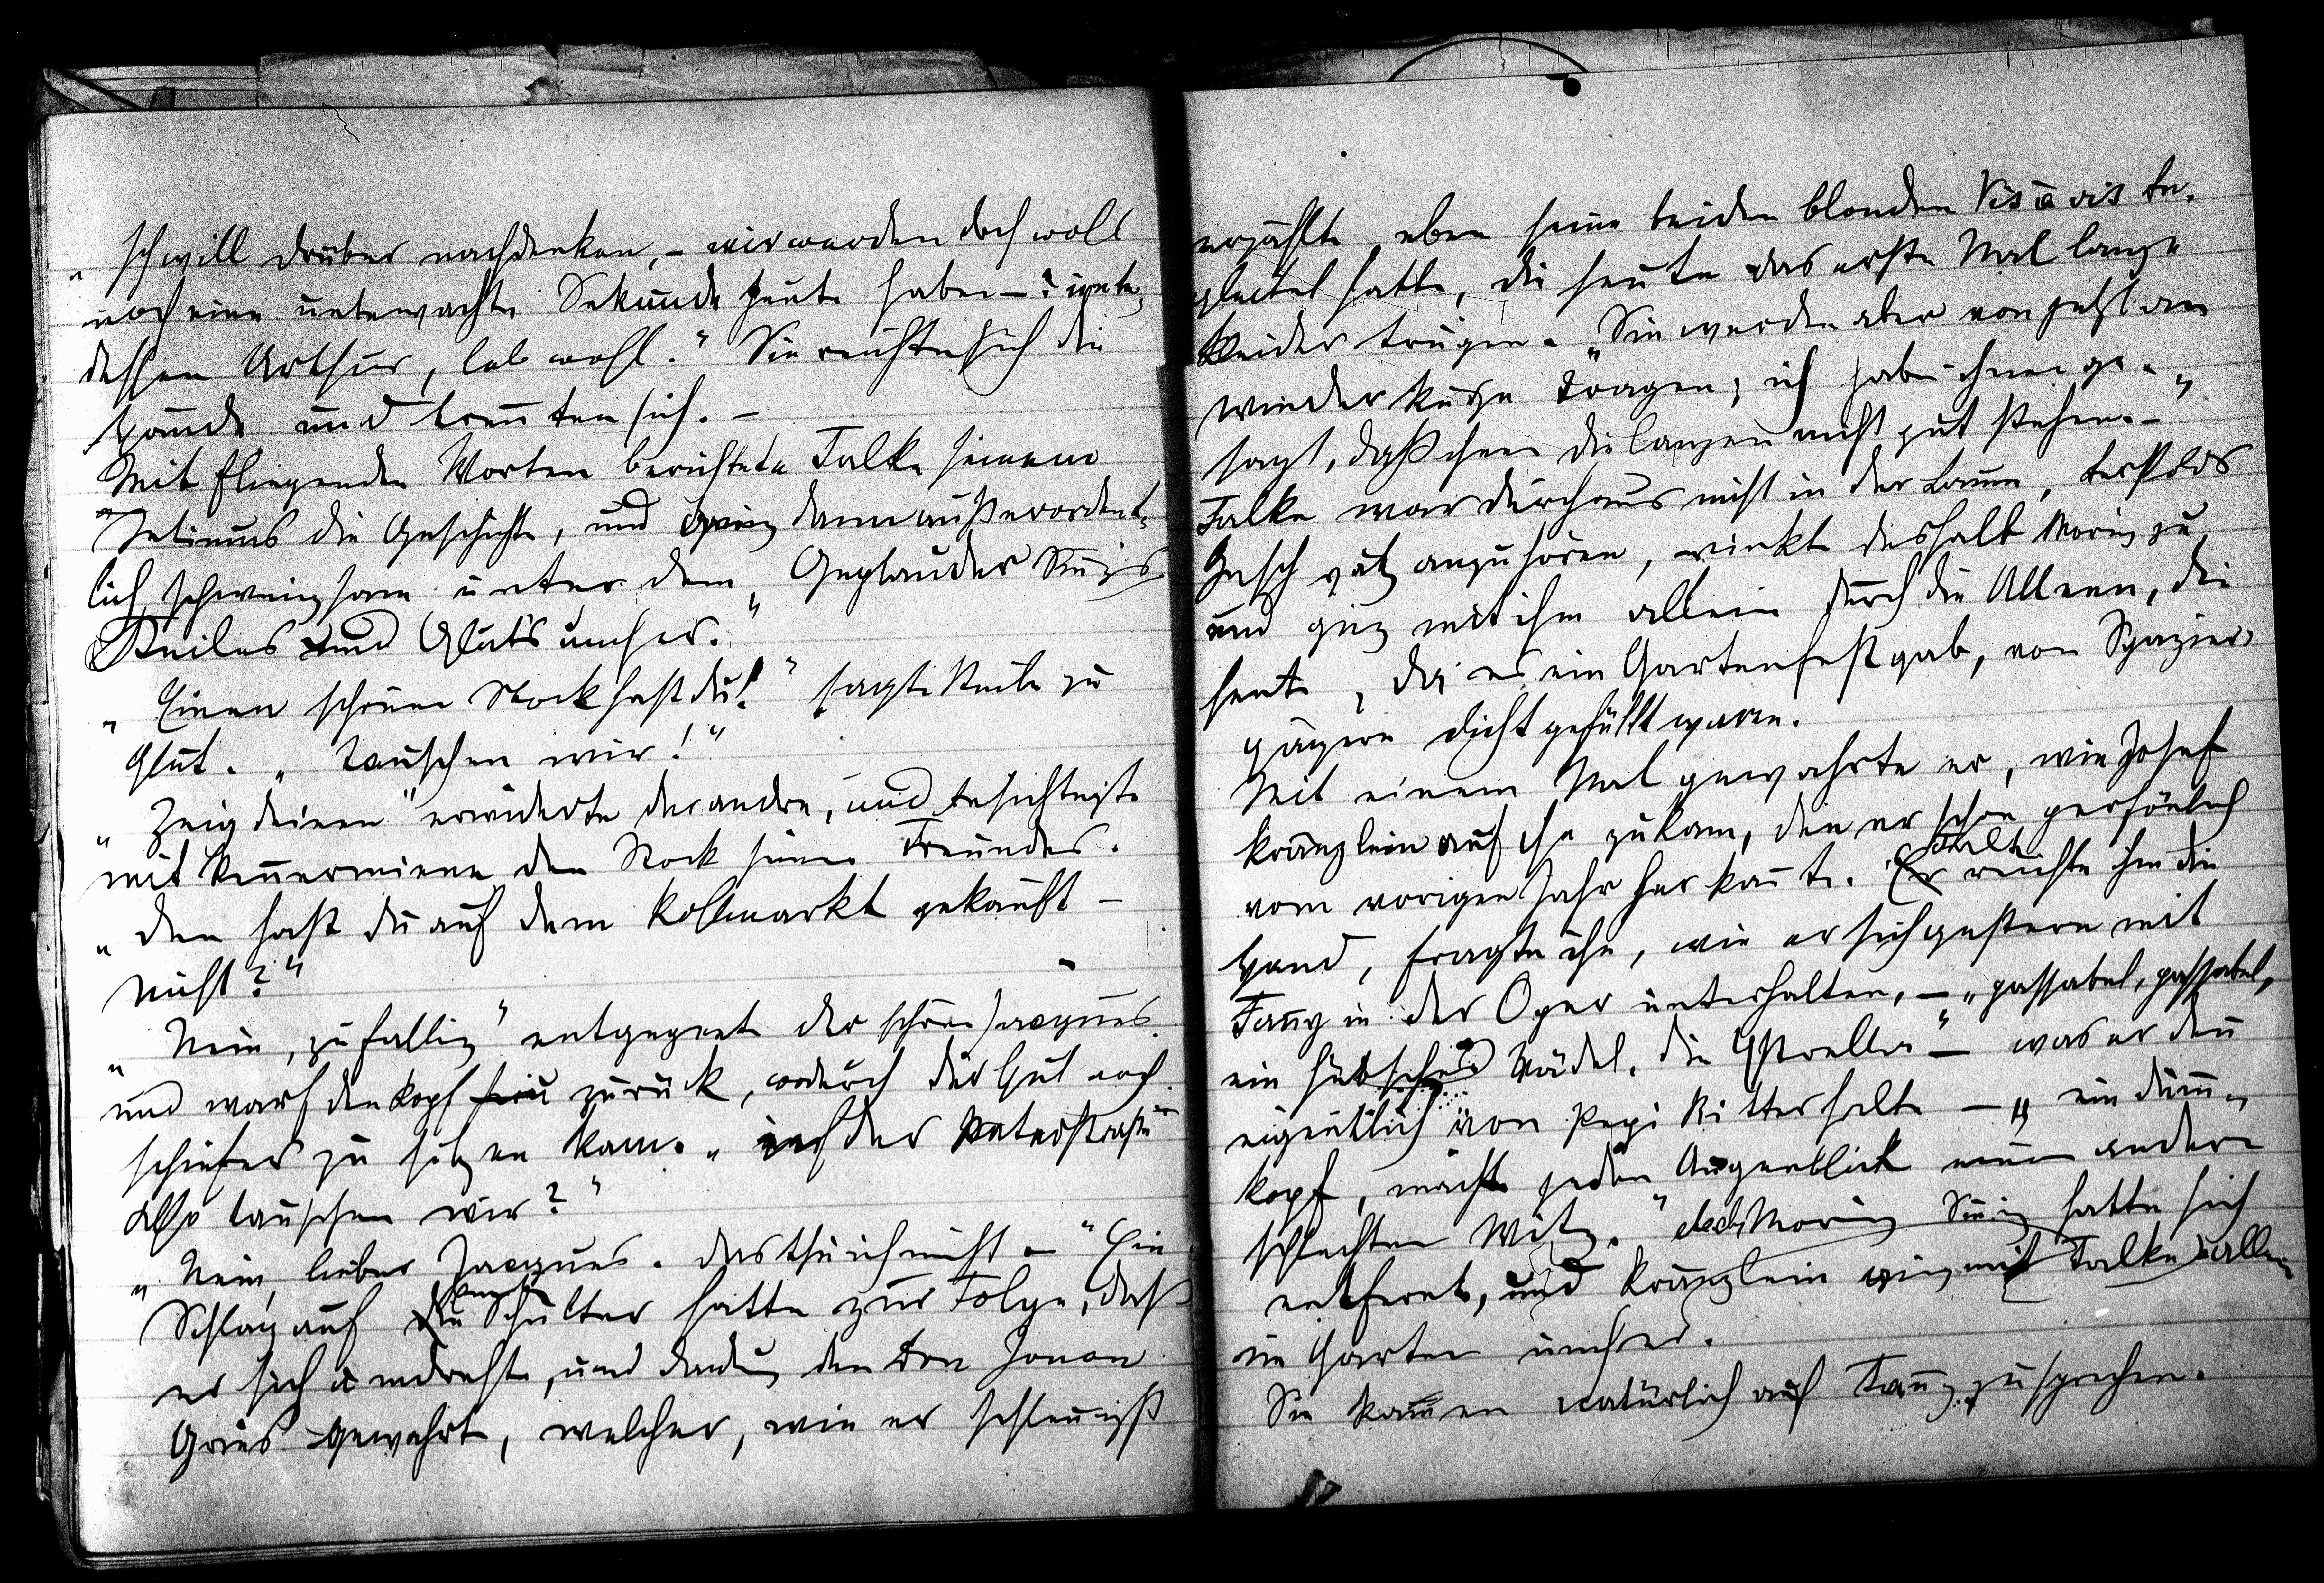 „Ich will drüber nachdenken, – wir werden doch wohl
noch eine unbewachte Sekunde heute haben – ? inde„
dessen Arthur, leb wohl.“ Sie reichten sich die
Hände und trennten sich. –
Mit fliegenden Worten berichtete Falke seinem
Intimus die Geschichte, und ging dann außerordent„
lich schweigsam unter dem „Geplauder Sinigs
Keiles und Gluts umher.“
„Einen schönen Stock hast du!“ sagte Keile zu
Glut. „Tauschen wir!“
„Zeig deinen“ erwiderte der andre, und besichtigte
mit Kennermiene den Stock seines Freundes.
„Den hast du auf dem Kohlmarkt gekauft –
nicht?“
„Nein, zufällig“ entgegnete der schöne Jacques
und warf den Kopf zurück, wodurch der Hut noch
schiefer zu sitzen kam. „in der Praterstraße“
Also tauschen wir?“
„Nein, lieber Jacques. das thu ich nicht –“ Ein
Schlag auf die Schulter hatte zur Folge, daß
er sich umdrehte, und den Don Juan
Gries gewahrte, welcher, wie er schleunigst
erzählte, eben seine beiden blonden Vis à vis be„
gleitet hatte, die heute das erste Mal lange
Kleider trügen. „Sie werden aber von jetzt an
wieder kurze tragen; ich habe ihnen ge„
sagt, daß ihnen die langen nicht gut stehen. –“
Falke war durchaus nicht in der Laune, derlei
Geschwätz anzuhören, winkte deshalb Moriz zu
und ging mit ihm allein durch die Alleen, die
heute, da es ein Gartenfest gab, von Spazier„
gängern dicht gefüllt waren.
Mit einem Mal gewahrte er, wie Josef
Kränzlein auf ihn zukam, den er schon persönlich
vom vorigen Jahr her kannte. Er Falke reichte ihm die
Hand, fragte ihn, wie er sich gestern mit
Fanny in der Oper unterhalten, – „passabel, passabel,
ein hübsches Mädel, die –“ was er denn
eigentlich von Pepi Ritter halte – „ein Dumm„
kopf, macht jeden Augenblick einen andern
schlechten Witz.“ Moriz Sinig hatte sich
entfernt, und Kränzlein ging mit Falke allein
im Garten umher.
Sie kamen natürlich auf Fanny zu sprechen.